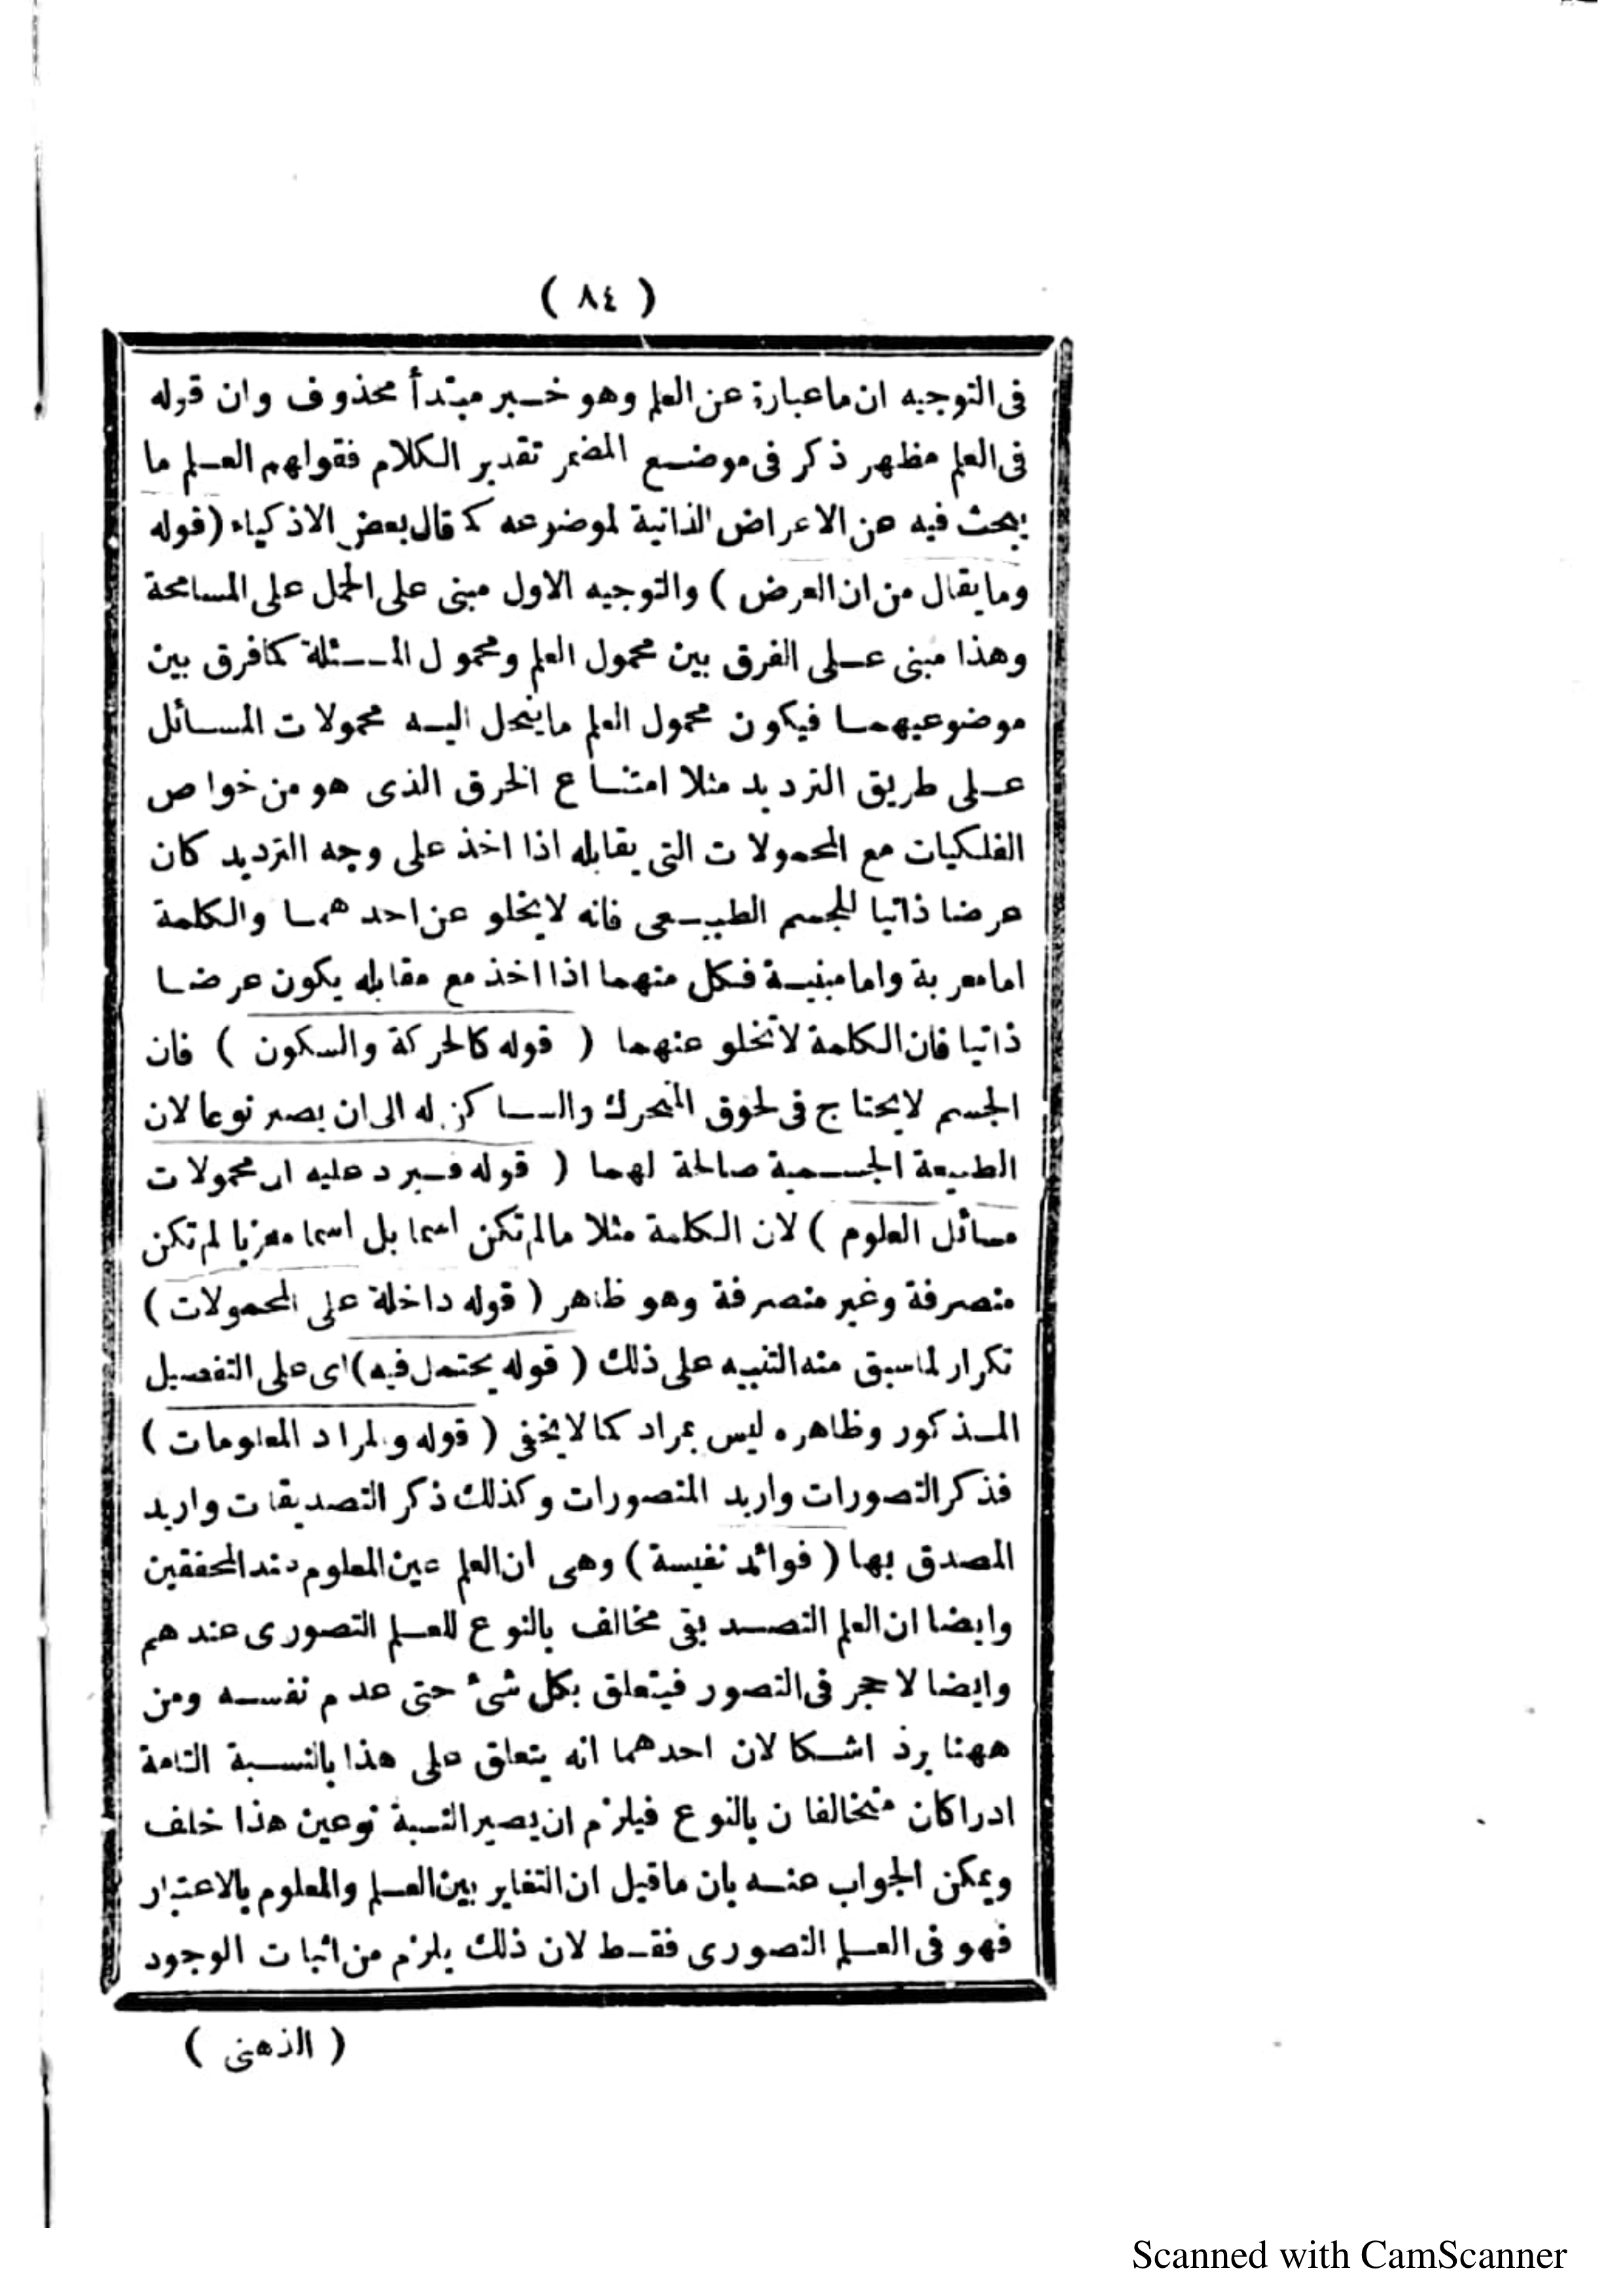 ( ٨٤ )
فى التوجيه ان ما عبارة عن العلم وهو خبر مبتدأ محذوف وان قوله
فى العلم مظهر ذكر فى موضع المضمر تقدير الكلام فقولهم العلم ما
يبحث فيه عن الاعراض الذاتية لموضوعه كما قال بعض الاذكياء (قوله
وما يقال من ان العرض ) والتوجيه الاول مبنى على الحمل على المسامحة
وهذا مبنى على الفرق بين محمول العلم ومحمول المسئلة كما فرق بين
موضوعيهما فيكون محمول العلم ما ينحل اليه محمولات المسائل
على طريق الترديد مثلا امتناع الخرق الذى هو من خواص
الفلكيات مع المحمولات التى يقابله اذا اخذ على وجه الترديد كان
عرضا ذاتيا للجسم الطبيعى فانه لا يخلو عن احدهما والكلمة
اما معربة واما مبنية فكل منهما اذا اخذ مع مقابله يكون عرضا
ذاتيا فان الكلمة لا تخلو عنهما ( قوله كالحركة والسكون ) فان
الجسم لا يحتاج فى لحوق المتحرك والساكن له الى ان يصير نوعا لان
الطبيعة الجسمية صالحة لهما ( قوله فيرد عليه ان محمولات
مسائل العلوم ) لان الكلمة مثلا مالم تكن اسما بل اسما معربا لم تكن
منصرفة وغير منصرفة وهو ظاهر ( قوله داخلة على المحمولات )
تكرار لما سبق منه التنبيه على ذلك ( قوله يحتمل فيه) اى على التفصيل
المذكور وظاهره ليس بمراد كما لا يخفى ( قوله والمراد المعلومات )
فذكر التصورات واريد المتصورات وكذلك ذكر التصديقات واريد
المصدق بها ( فوائد نفيسة ) وهى ان العلم عين المعلوم عند المحققين
وايضا ان العلم التصديقى مخالف بالنوع للعلم التصورى عندهم
وايضا لا حجر فى التصور فيتعلق بكل شئ حتى عدم نفسه ومن
ههنا يرد اشكالان احدهما انه يتعلق على هذا بالنسبة التامة
ادراكان متخالفان بالنوع فيلزم ان يصير النسبة نوعين هذا خلف
ويمكن الجواب عنه بان ما قيل ان التغاير بين العلم والمعلوم بالاعتبار
فهو فى العلم التصورى فقط لان ذلك يلزم من اثبات الوجود
( الذهنى )
Scanned with CamScanner